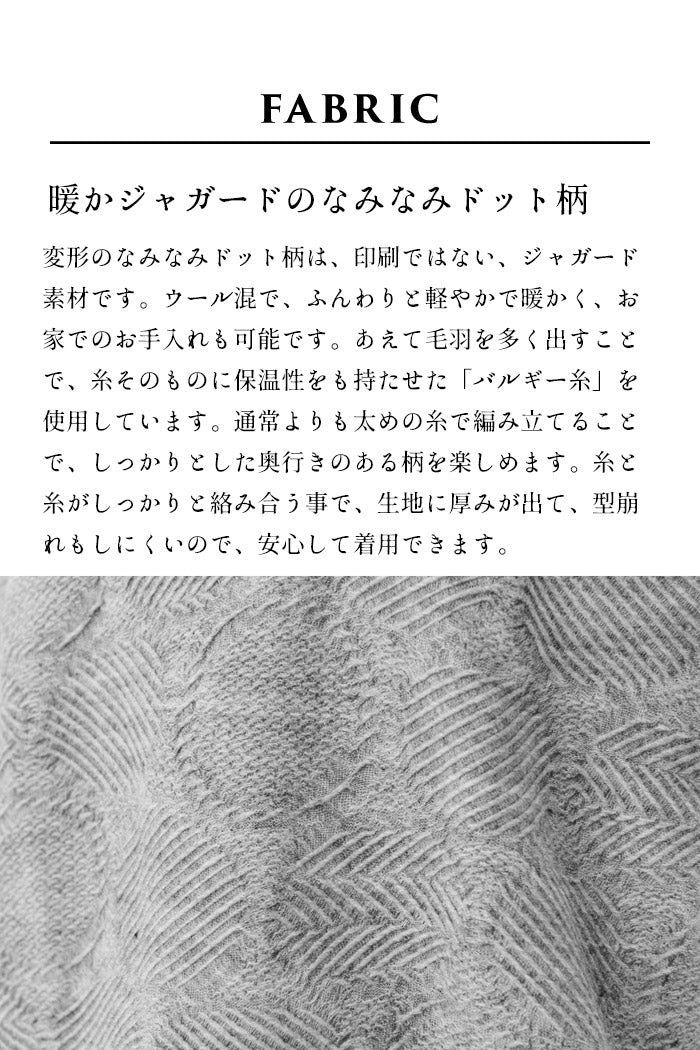 FABRIC
暖かジャガードのなみなみドット柄
変形のなみなみドット柄は、印刷ではない、ジャガード
素材です。ウール混で、ふんわりと軽やかで暖かく、お
家でのお手入れも可能です。あえて毛羽を多く出すこと
で、糸そのものに保温性をも持たせた「バルギー糸」を
使用しています。通常よりも太めの糸で編み立てること
で、しっかりとした奥行きのある柄を楽しめます。糸と
糸がしっかりと絡み合う事で、生地に厚みが出て、型崩
れもしにくいので、安心して着用できます。